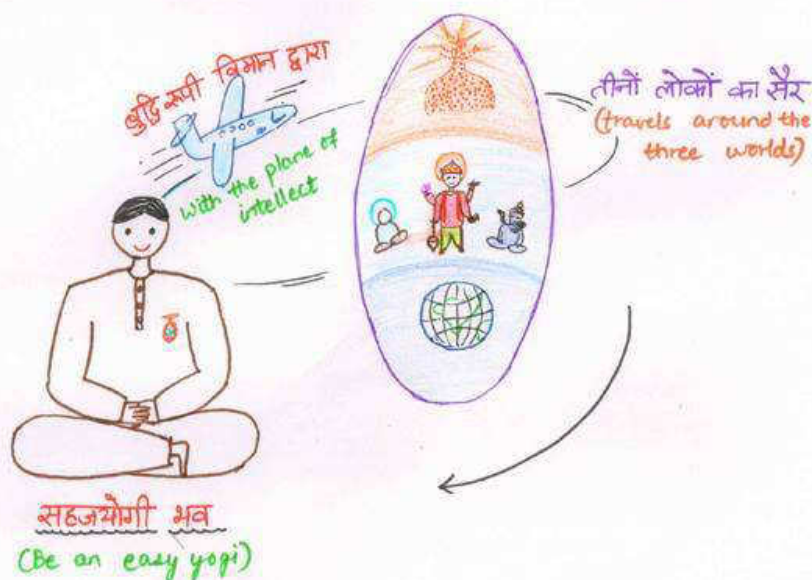 बुद्धि रूपी विमान द्वारा
with the plane of
intellect
तीनों लोकों का सैर
(travels around the
three worlds)
सहजयोगी भव
(Be an easy yogi)